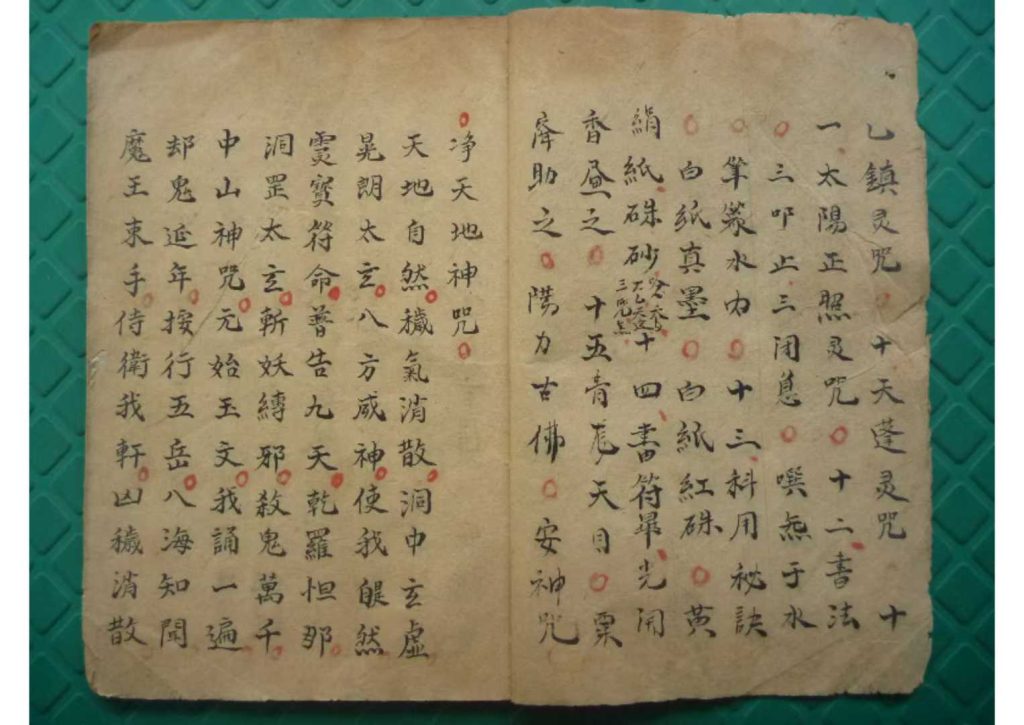 乙鎮灵咒○十天蓬灵咒 十
一太陽正照灵咒○十二書法
○三叩止三闭息○噀炁于水
○笔籙水内○十三科用秘訣
○白紙真墨○白紙紅硃○黄
絹紙硃砂十四書符畢光開
香昼之○十五青尨天目○稟
降助之○陽力古佛○安神咒
○净天地神咒○
天地自然穢氣消散洞中玄虛
晃朗太玄八方威神使我自然
灵寳符命普告九天乾羅怛那
洞罡太玄斬妖縛邪殺鬼萬千
中山神咒元始玉文我誦一遍
却鬼延年按行五岳八海知聞
魔王束手侍衛我軒凶穢消散